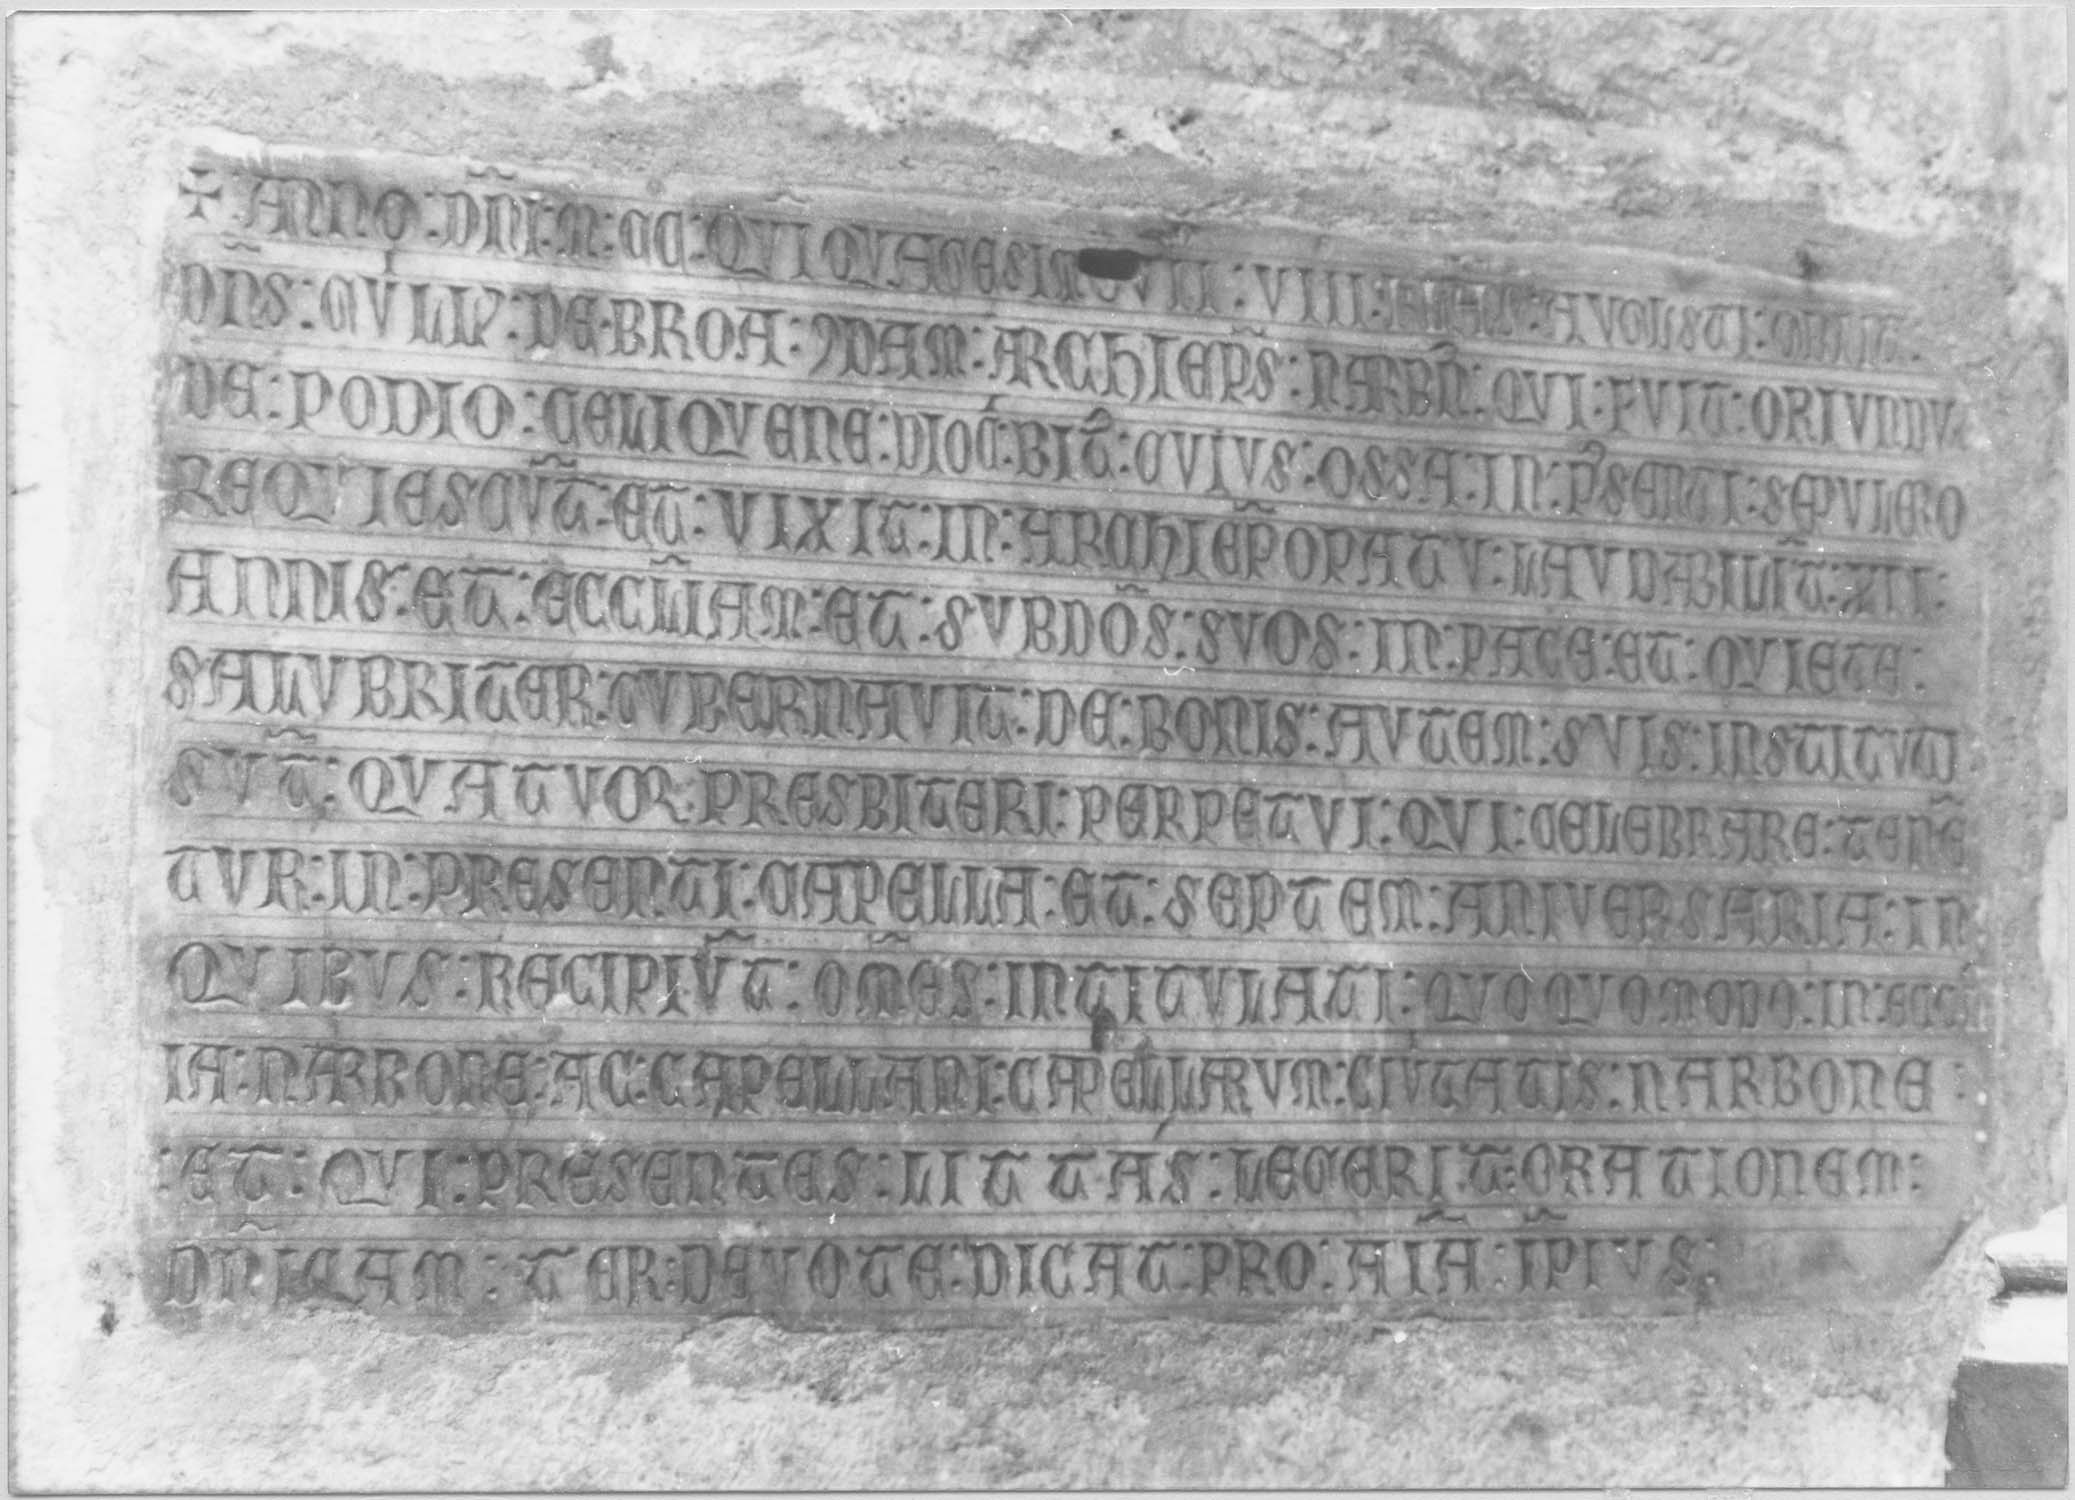 ✠ ANNO : DÑI : M : CC : QVIQVAGESIMO VII : VIII : KLAS : AVGVSTI : OBIIT :
DÑS : GVLLꝰ : DE : BROA : ꝯDAM : ARCHIEPS̃ : NARBÑ : QVI : FVIT : ORIVNDVS
DE : PODIO : CELIQVENE : DIOC̃ : BIT̃ : CVIVS : OSSA : IN : P̃SENTI : SEPVLCRO
REQVIESCṼT : ET : VIXIT : IN : ARCHIEP̃OPATV : LAVDABILIT̃ : XII :
ANNIS : ET : ECCL̃IAM : ET : SVBDÕS : SVOS : IN : PACE : ET : QVIETE :
SALVBRITER : GVBERNAVIT : DE : BONIS : AVTEM : SVIS : INSTITVTI :
SṼT : QVATVOR : PRESBITERI : PERPETVI : QVI : CELEBRARE : TENẼ
TVR : IN : PRESENTI : CAPELLA : ET : SEPTEM : ANIVERSARIA : IN :
QVIBVS : RECIPIṼT : OM̃ES : INTITVLATI : QVOQVOMODO : IN : ECCL̃
IA : NARBONE : AC : CAPELLANI : CAPELLARVM : CIVTATIS : NARBONE :
: ET : QVI : PRESENTES : LITTAS : LEGERIT : ORATIONEM :
DÑICAM : TER : DEVOTE : DICAT : PRO : AĨA : IP̃IVS :